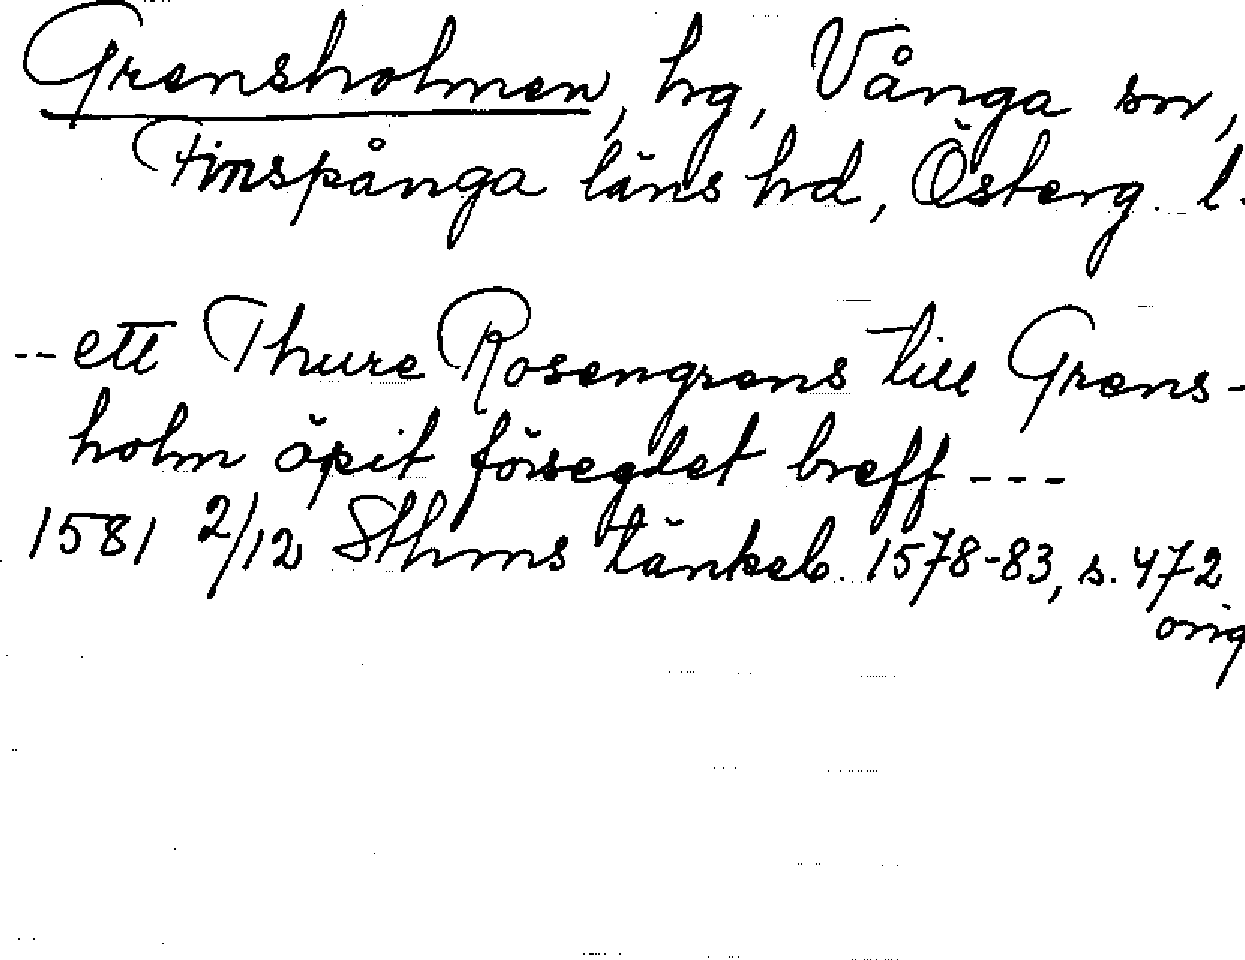 Grensholmen, hg, Vånga sn,
Finspånga läns hd, Österg. l.
-- ett Thure Rosengrens till Grens-
holm öpit försegdet breff ---
1581 2/12 Sthms tänkeb. 1578-83, s. 472
orig